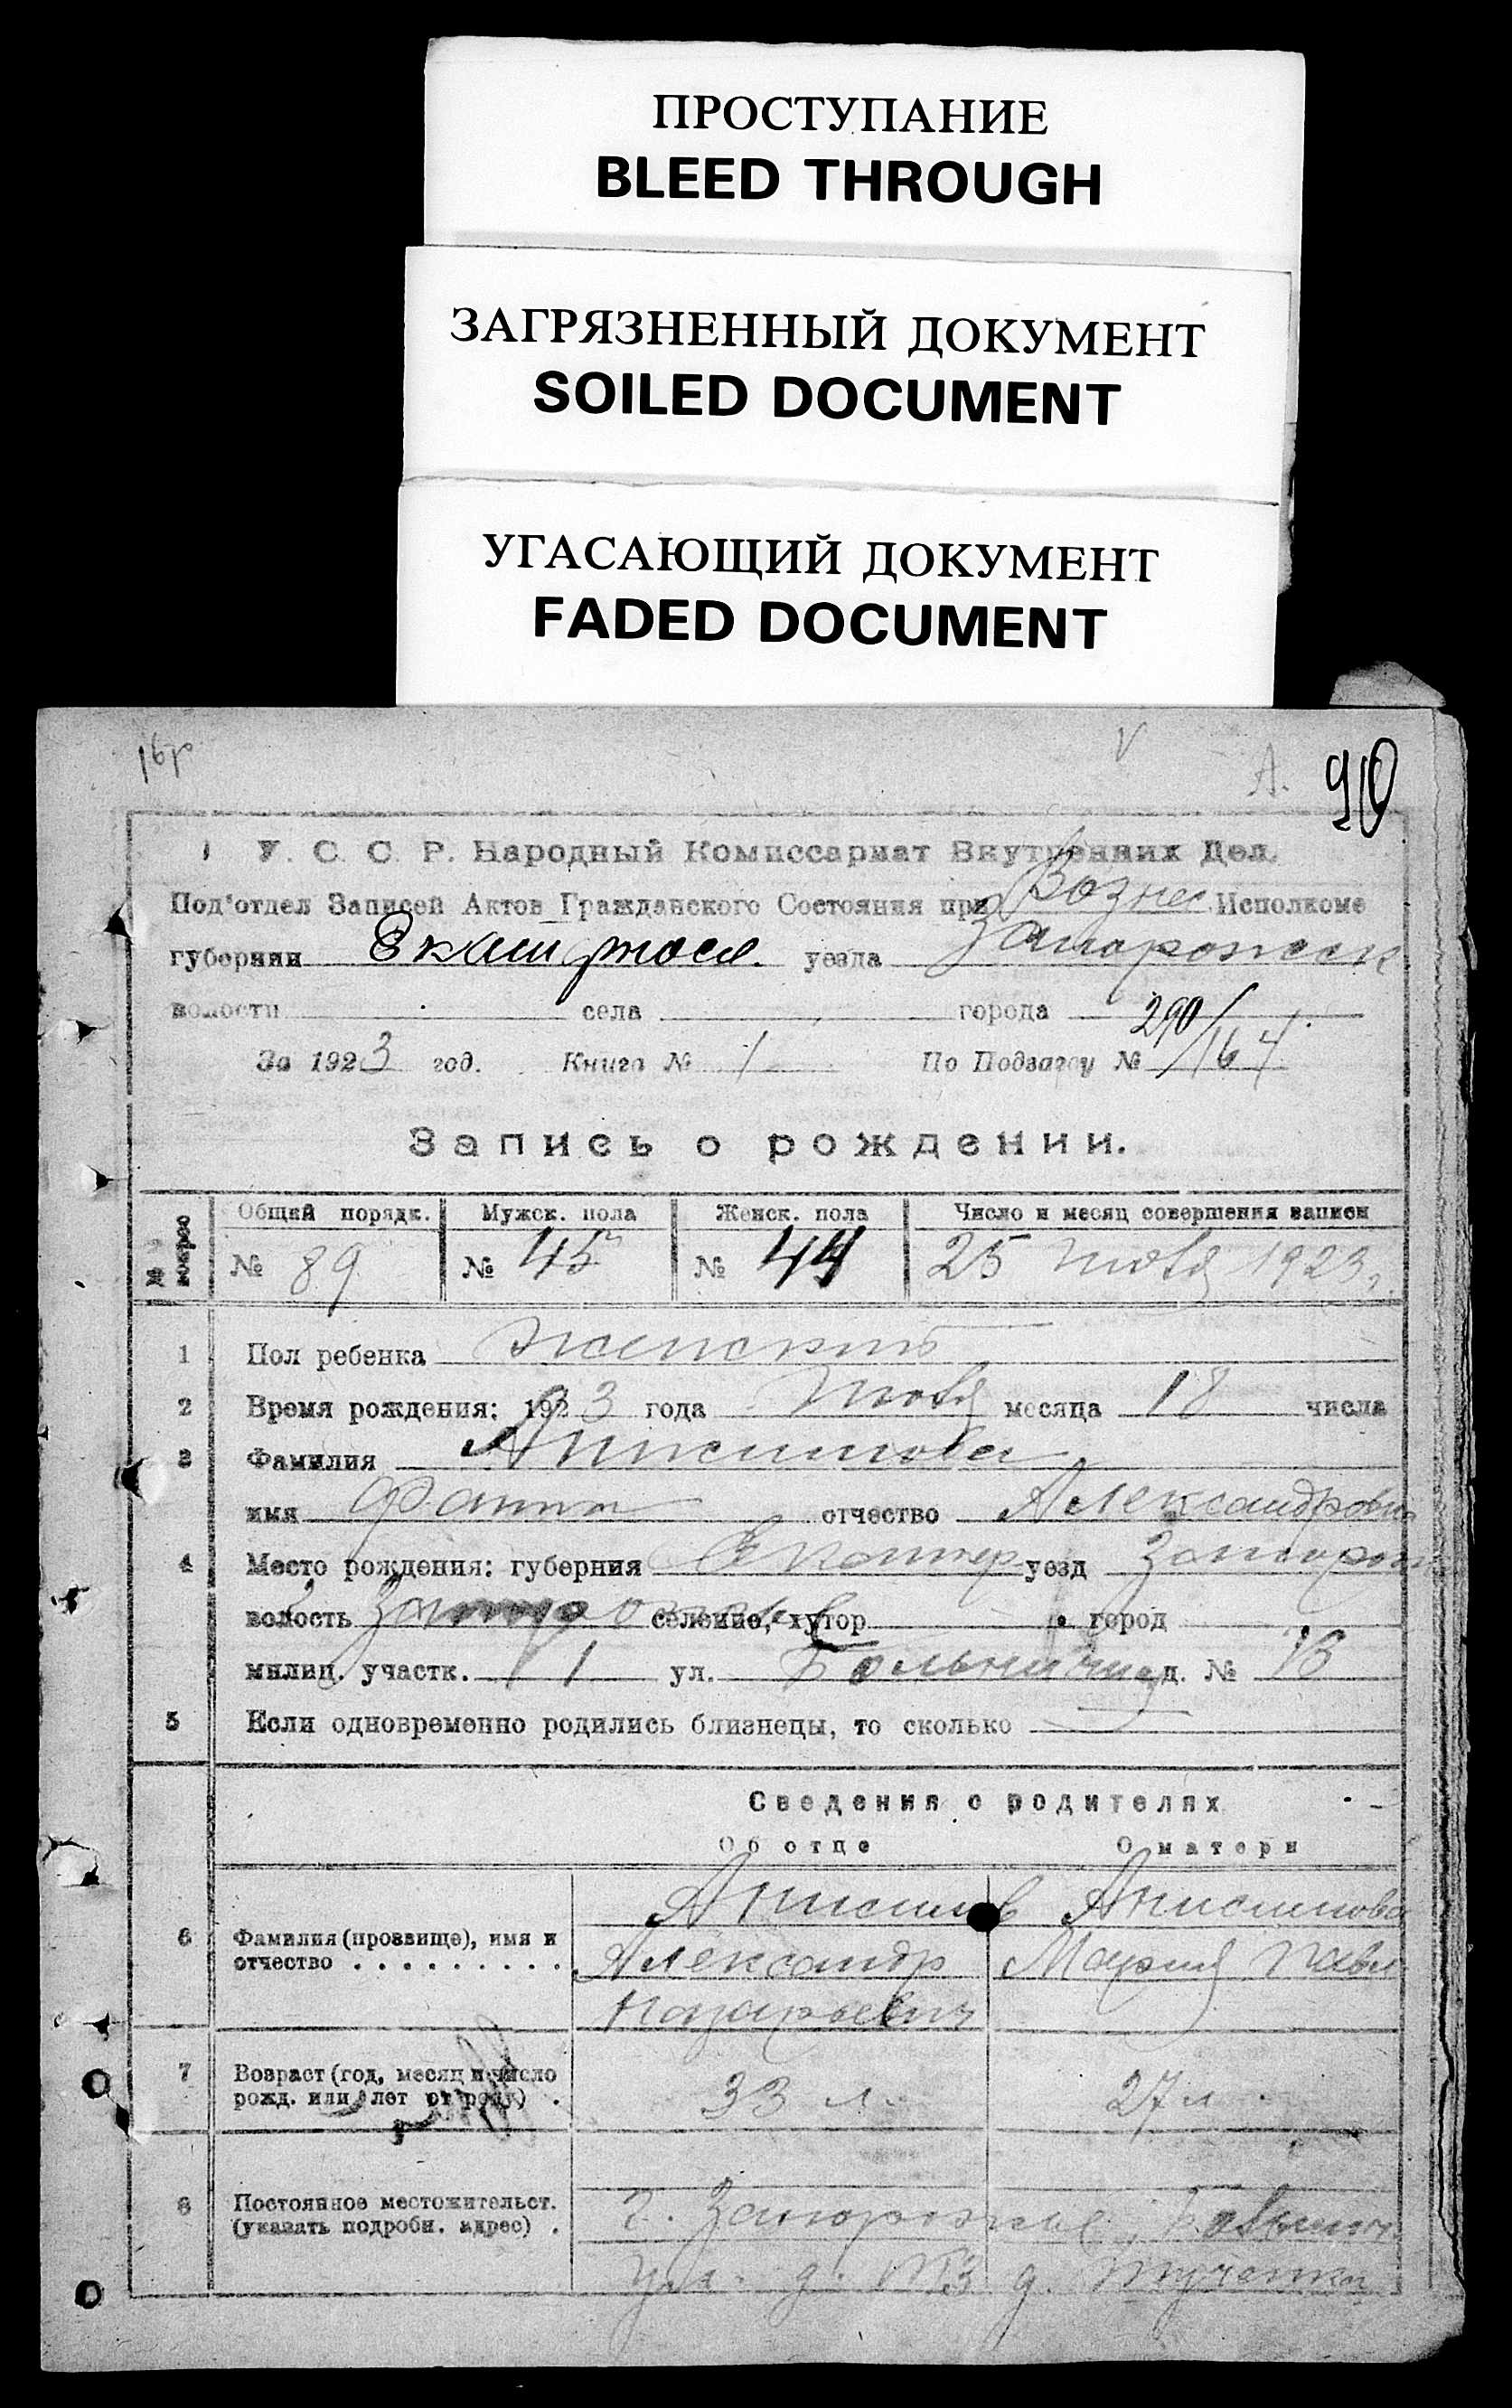 ПРОСТУПАНИЕ
BLEED THROUGH
ЗАГРЯЗНЕННЫЙ ДОКУМЕНТ
SOILED DOCUMENT
УГАСАЮЩИЙ ДОКУМЕНТ
FADED DOCUMENT
16р
V
А. 90
У. С. С. Р. Народный Комиссариат Внутренних Дел.
Под'отдел Записей Актов Гражданского Состояния при Вознес Исполкоме
губернии уезда Запорожск
волости села города
За 1923 год. Книга № 1 По Подзагсу № 290/164
Запись о рождении.
№ вопрос Общий порядк. Мужск. пола Женск. пола Число и месяц совершения записи
№ 89 № 45 № 44 25 июля 1923 г.
1 Пол ребенка женский
2 Время рождения: 1923 года июля месяца 18 числа
3 Фамилия Анисимова
имя отчество Александровна
4 Место рождения: губерния Екатер уезд Запорож
волость Запорожье селение, хутор город
милиц. участк. 1 ул. Больничная д. № 13
5 Если одновременно родились близнецы, то сколько
Сведения о родителях
Об отце О матери
6 Фамилия (прозвище), имя и отчество . . . . . . . . .
Анисимов Анисимова
Александр Мария Павл
Назарьевич
7 Возраст (год, месяц и число рожд. или лет от роду) .
33 л. 27 л.
8 Постоянное местожительст. (указать подробн. адрес) .
г. Запорожье, Больнич.
ул. д. №13 д.